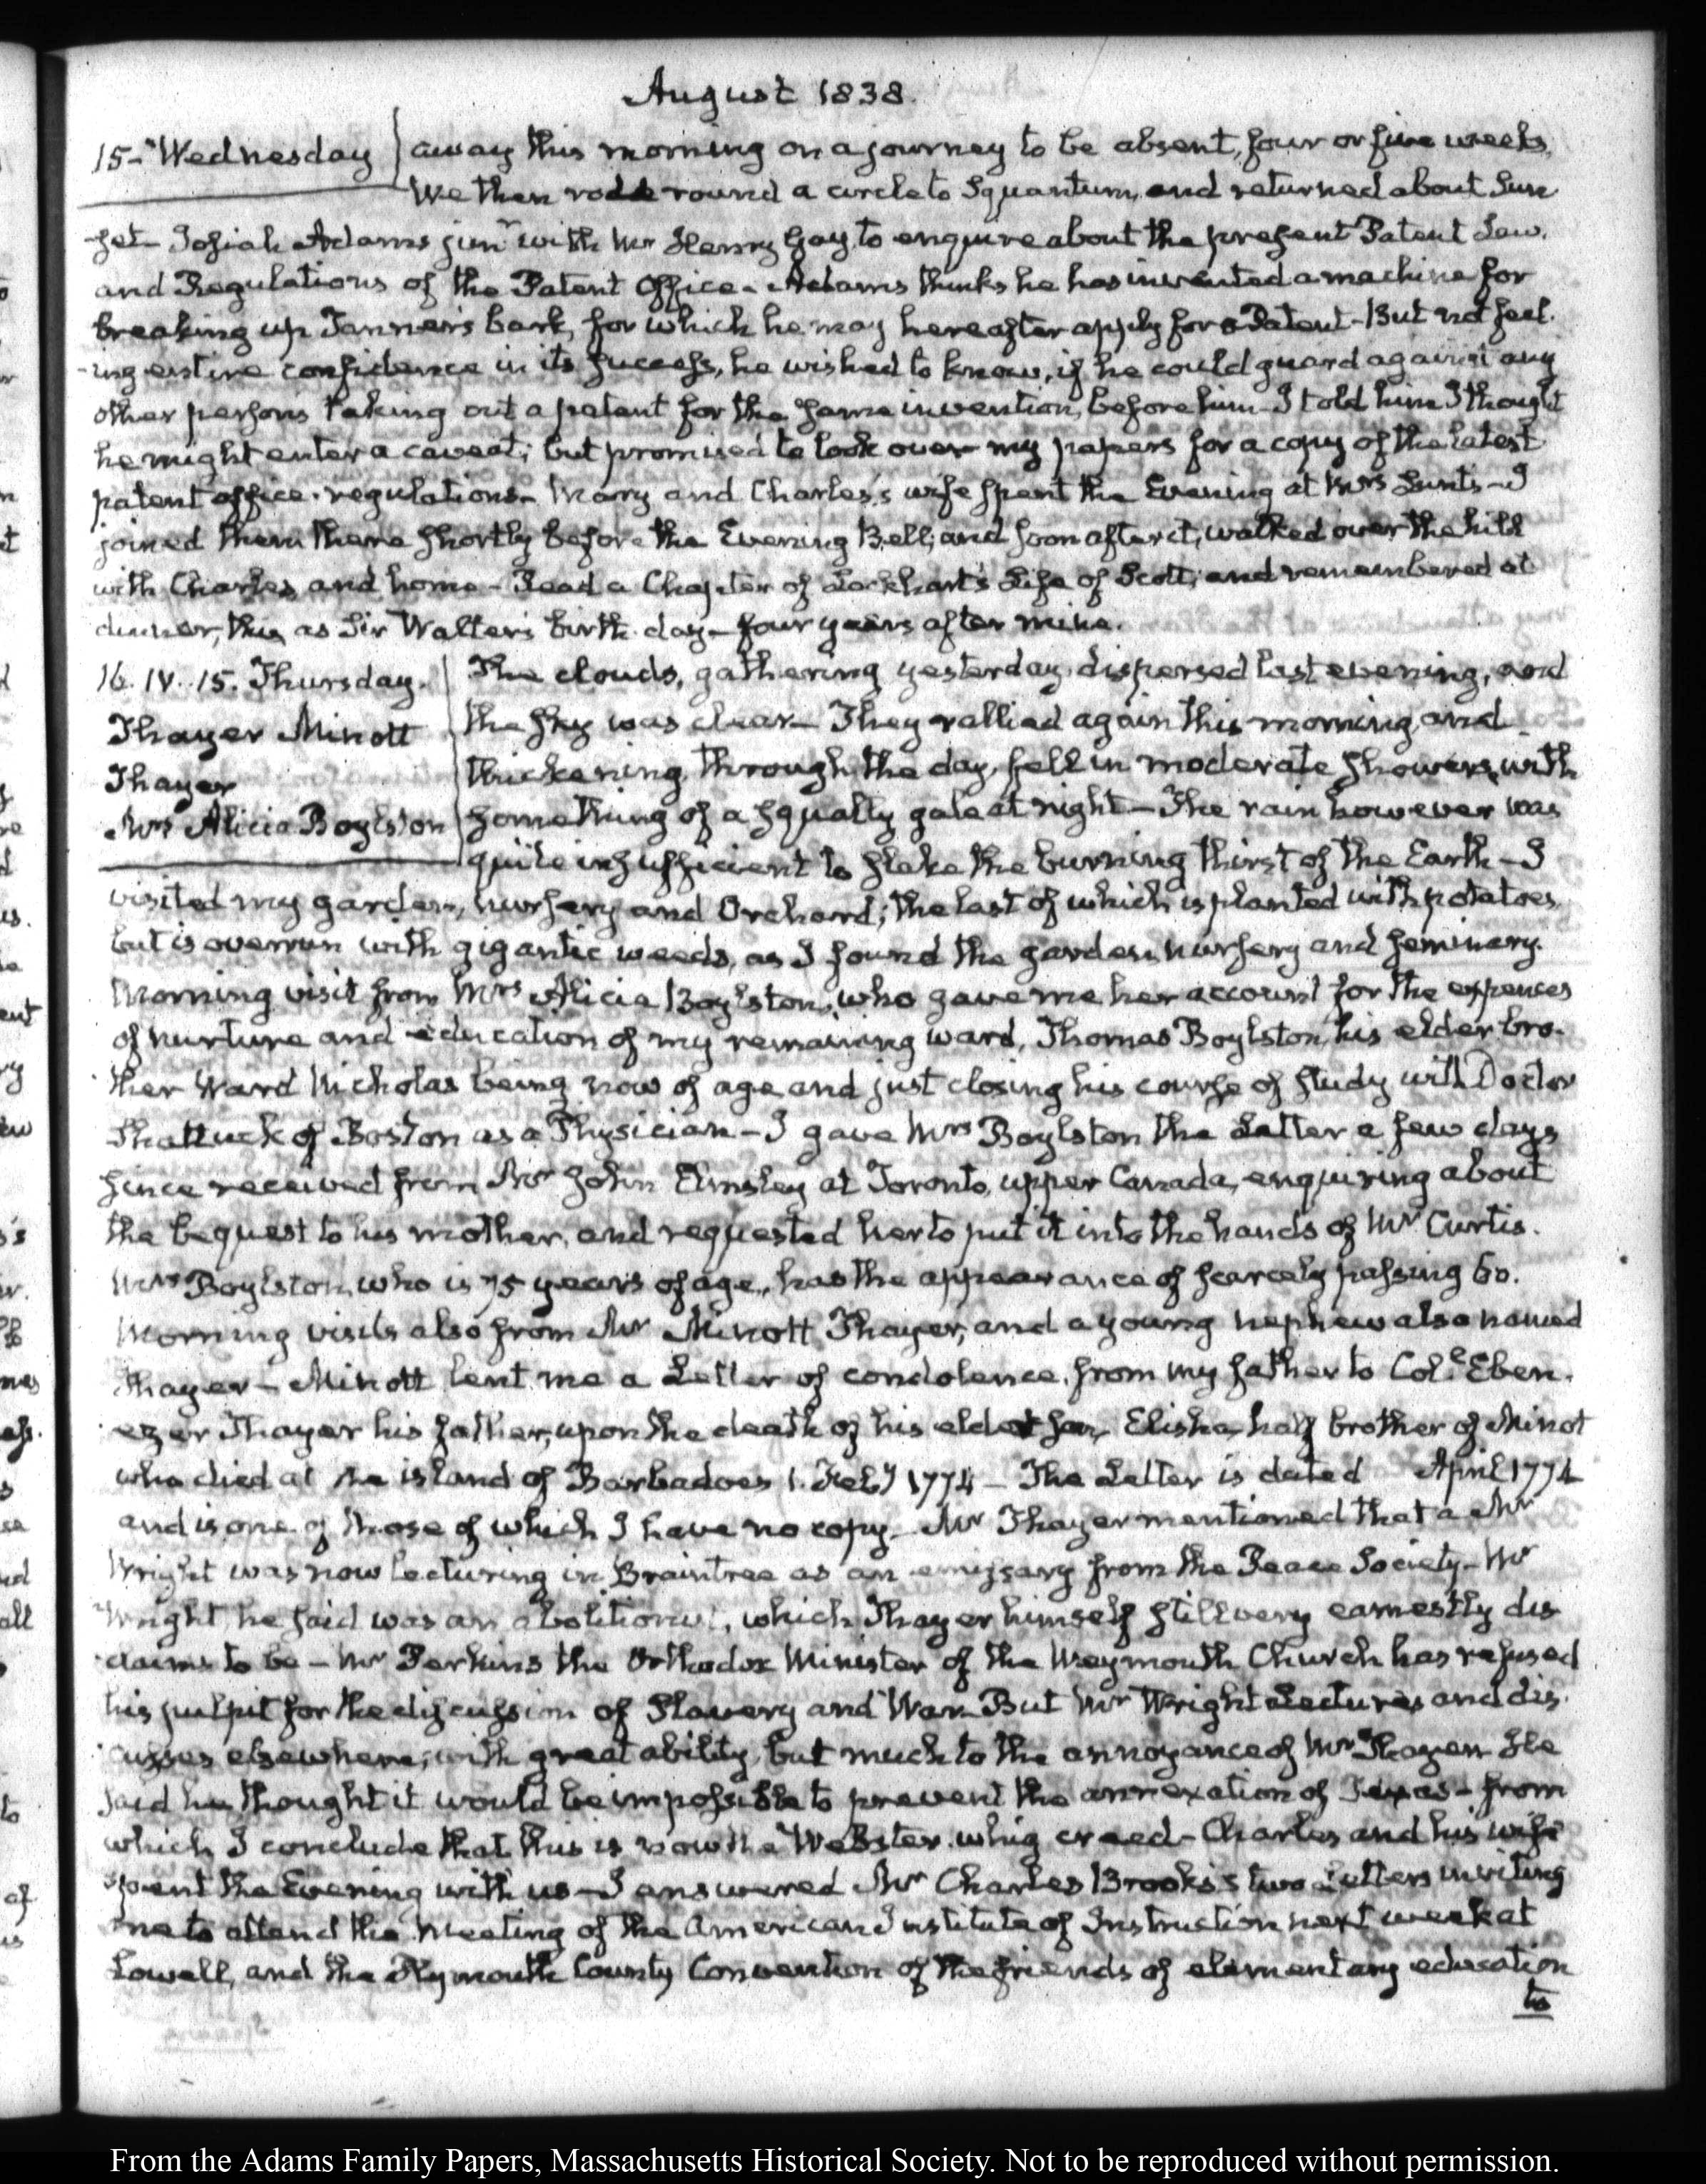 August 1838.
15- Wednesday away this morning on a journey to be absent, four or five weeks.
We then rode round a circle to Squantum, and returned about Sun
-set- Josiah Adams junr with Mr Henry Gay, to enquire about the present Patent Law.
and Regulations of the Patent Office- Adams thinks he has invented a machine for
breaking up Tanner's bark, for which he may hereafter apply for a Patent- But not feel-
-ing entire confidence in its success, he wished to know, if he could guard against any
other person's taking out a patent for the same invention, before him- I told him I thought
he might enter a caveat; but promised to look over my papers for a copy of the latest
patent office regulations- Mary and Charles's wife spent the Evening at Mrs Lunt's- I
joined them there shortly before the Evening Bell; and soon after it, walked over the hill
with Charles and home- Read a Chapter of Lockhart's Life of Scott; and remembered at
dinner, this as Sir Walter's birth-day- four years after mine.
16. IV. 15. Thursday. The clouds, gathering yesterday dispersed last evening, and
Thayer Minott the sky was clear- They rallied again this morning, and
Thayer thickening, through the day, fell in moderate showers, with
Mrs Alicia Boylston something of a squally gale at night- The rain however was
quite insufficient to slake the burning thirst of the Earth- I
visited my garden, nursery and Orchard; the last of which is planted with potatoes,
but is overrun with gigantic weeds, as I found the garden, nursery and seminary.
Morning visit from Mrs Alicia Boylston, who gave me her account for the expences
of nurture and education of my remaining ward, Thomas Boylston, his elder bro-
ther Ward Nicholas being now of age and just closing his course of study with Doctor
Shattuck of Boston as a Physician- I gave Mrs Boylston the Letter a few days
since received from Mr John Elmsley at Toronto, upper Canada, enquiring about
the bequest to his mother, and requested her to put it into the hands of Mr Curtis.
Mrs Boylston, who is 75 years of age, has the appearance of scarcely passing 60.
Morning visits also from Mr Minott Thayer, and a young nephew also named
Thayer- Minott lent me a Letter of condolence, from my father to Col. Eben-
ezer Thayer his father, upon the death of his eldest son Elisha, half brother of Minot
who died at the island of Barbadoes 1. Feby 1774- The Letter is dated April 1774
and is one of those of which I have no copy- Mr Thayer mentioned that a Mr
Wright was now lecturing in Braintree as an emissary from the Peace Society- Mr
Wright he said was an abolitionist, which Thayer himself still very earnestly dis
claims to be- Mr Perkins the Orthodox Minister of the Weymouth Church has refused
his pulpit for the discussion of Slavery and War- But Mr Wright Lectures and dis-
cusses elsewhere, with great ability, but much to the annoyance of Mr Thayer- He
said he thought it would be impossible to prevent the annexation of Texas- from
which I conclude that this is now the Webster whig creed- Charles and his wife
spent the Evening with us- I answered Mr Charles Brooks's two Letters inviting
me to attend the Meeting of the American Institute of Instruction next week at
Lowell, and the Plymouth County Convention of the friends of elementary education
to
From the Adams Family Papers, Massachusetts Historical Society. Not to be reproduced without permission.